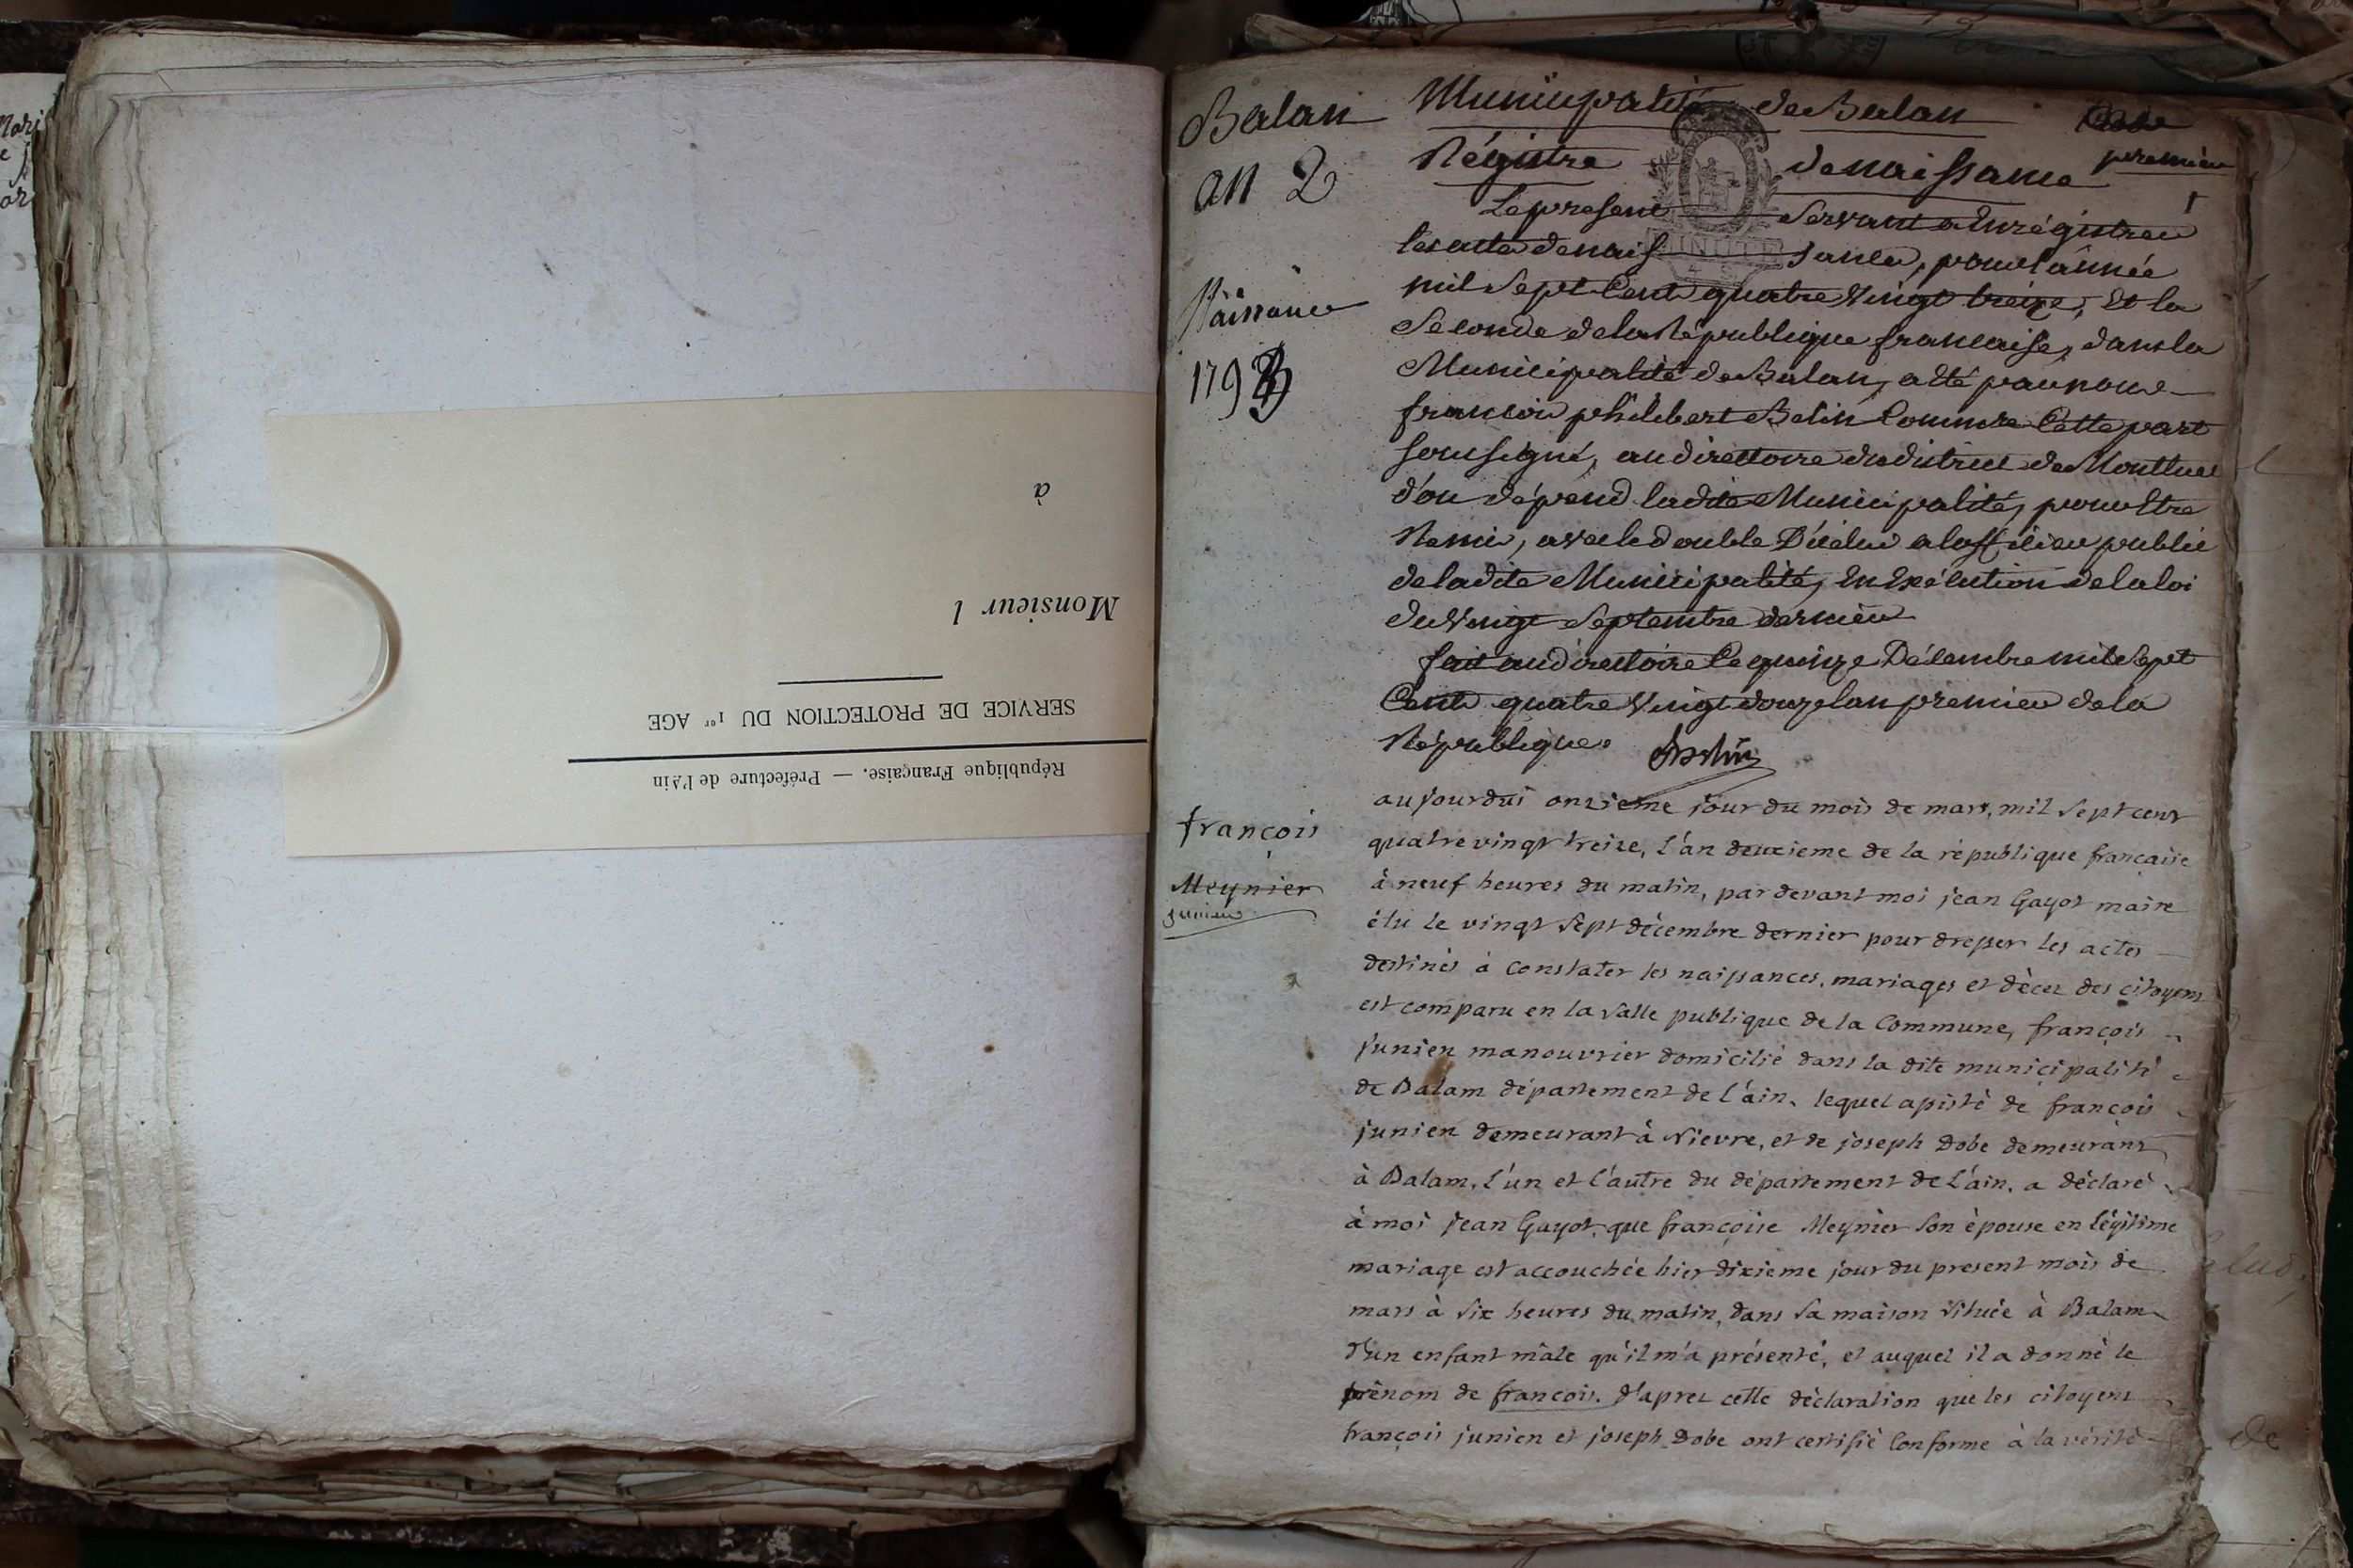 à
Monsieur l
SERVICE DE PROTECTION DU 1er AGE
République Française. — Préfecture de l'Ain
Balan
an 2
Naissance
1793
Municipalité de Balan
premier
Régistre de naissance
1
Le present servant a Enrégistrer
les actes de naissances, pour l'année
mil Sept Cent quatre Vingt treize, Et la
Seconde de la République francaise, dans la
Municipalité de Balan, a été par nous
francois philibert Belin Commre Cette part
soussigné, au directoire du district de Montluel
d'ou dépend ladite Municipalité, pour Etre
Remis, avec le double D'icelui a lofficier public
de ladite Municipalité, En Exécution de la loi
du Vingt Septembre dernier
fait au directoire le quinze Décembre mil Sept
Cent quatre Vingt douze lan premier de la
République. Belin
françois
Meynier
junien
aujourdui onzieme jour du mois de mars, mil sept cent
quatre vingt treize, l'an deuxieme de la république française
à neuf heures du matin, par devant moi jean Gayot maire
élu le vingt sept décembre dernier pour dresser les actes
destinés à constater les naissances, mariages et décez des citoyens
est comparu en la salle publique de la Commune, françois
junien manouvrier domicilié dans la dite municipalité
de Balam département de l'áin, lequel apisté de françois
junien demeurant à Nievre, et de joseph Dobe demeurant
à Balam, l'un et l'autre du département de l'áin, a déclaré
à moi jean Gayot, que françoise Meynier son épouse en légitime
mariage est accouchée hier dixieme jour du present mois de
mars à six heures du matin, dans sa maison située à Balam
d'un enfant mâle qu'il m'a présenté, et auquel il a donné le
prénom de françois. d'aprez cette déclaration que les citoyens
françois junien et joseph Dobe ont certifié conforme à la vérité